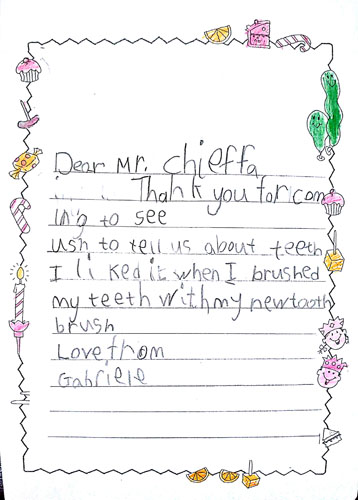 Dear Mr. chieffa
Thank you for com
ing to see
ush to tell us about teeth
I liked it when I brushed
my teeth with my newtooth
brush
Love from
Gabriele